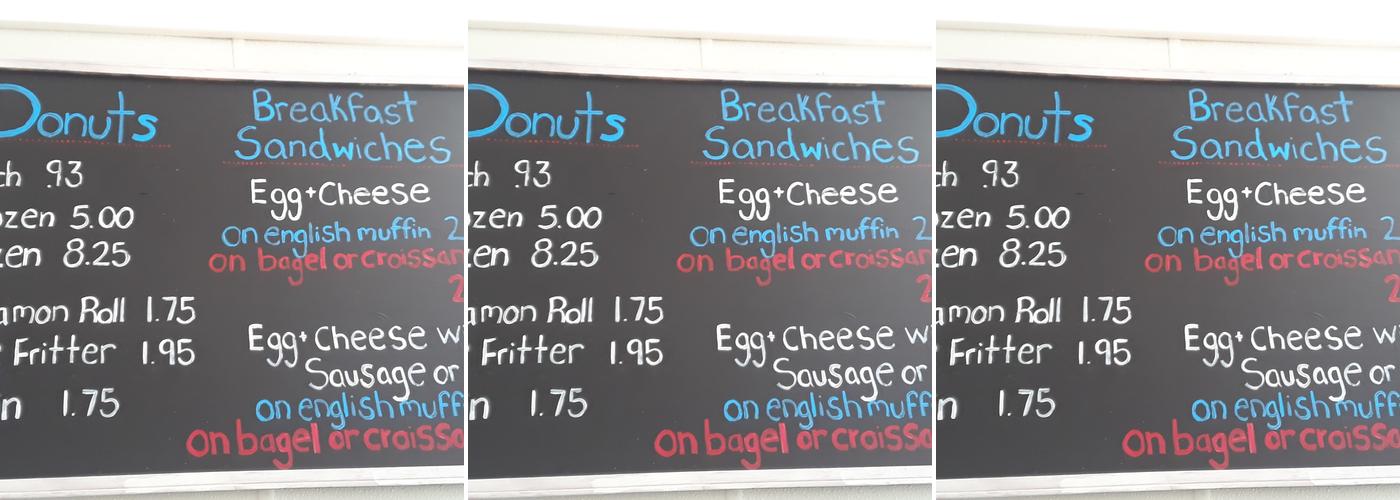 Donuts
ch .93
ozen 5.00
zen 8.25
amon Roll 1.75
Fritter 1.95
n 1.75
Breakfast
Sandwiches
Egg+Cheese
on english muffin 2
on bagel or croissan
2
Egg+Cheese w
Sausage or
on english muff
on bagel or croisso
Donuts
ch .93
ozen 5.00
zen 8.25
amon Roll 1.75
Fritter 1.95
n 1.75
Breakfast
Sandwiches
Egg+Cheese
on english muffin 2
on bagel or croissan
2
Egg+Cheese w
Sausage or
on english muff
on bagel or croisso
Donuts
ch .93
ozen 5.00
zen 8.25
amon Roll 1.75
Fritter 1.95
n 1.75
Breakfast
Sandwiches
Egg+Cheese
on english muffin 2
on bagel or croissan
2
Egg+Cheese w
Sausage or
on english muff
on bagel or croisso